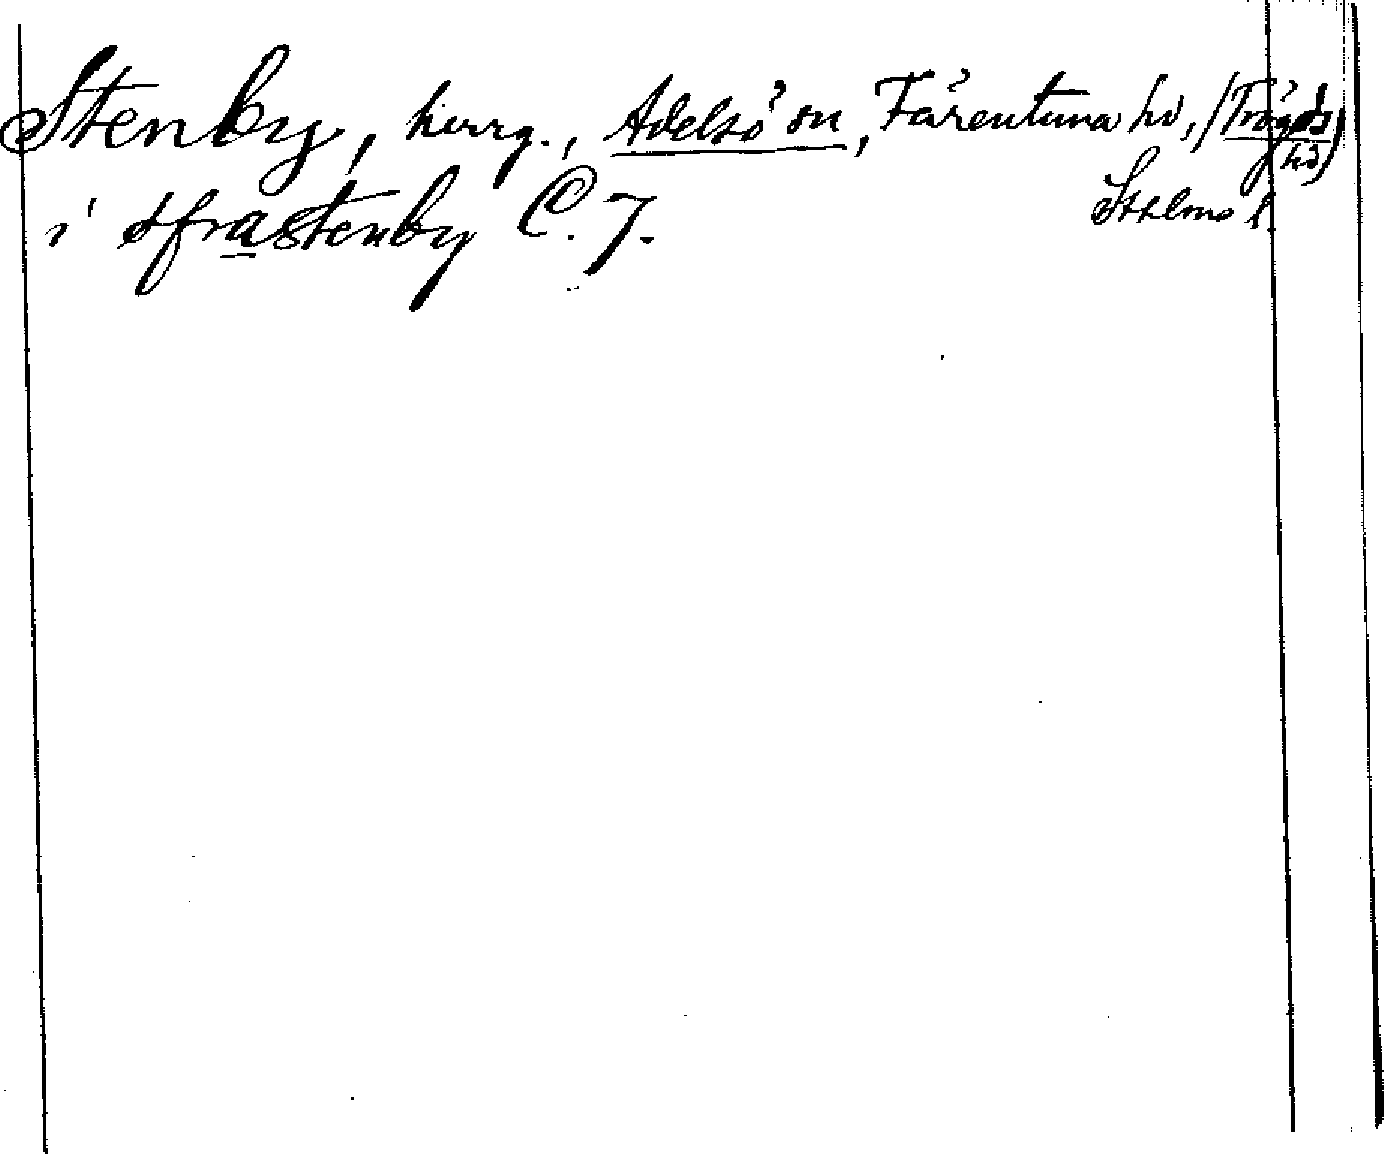 Stenby, herrg., Adelsö sn, Färentuna hd, (Trögds hd)
Sthlms l.
i ofrastenby C. J.